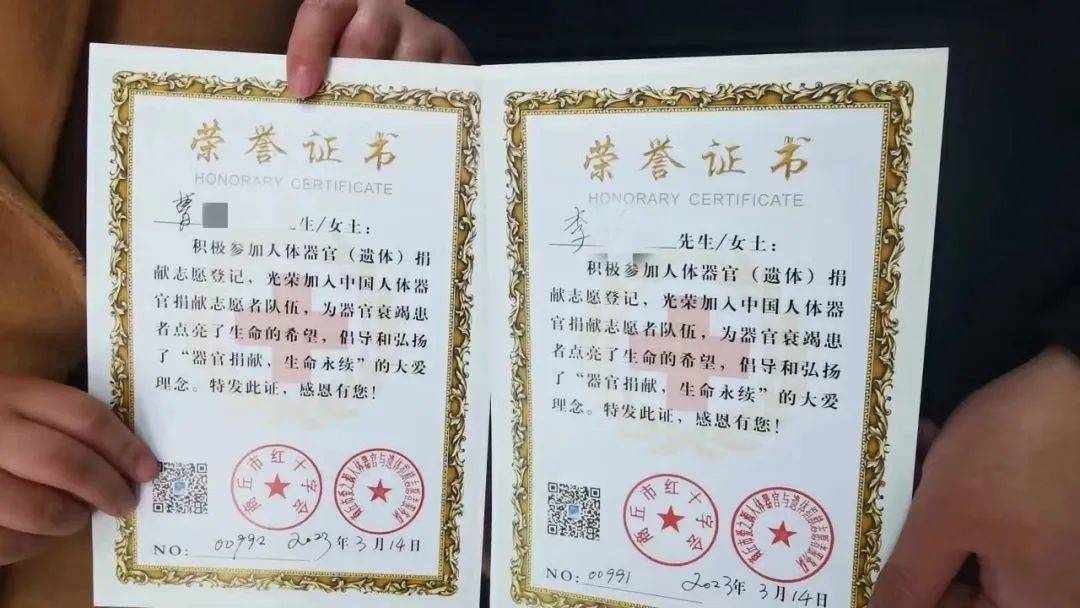 荣誉证书
HONORARY CERTIFICATE
曹 生/女士：
积极参加人体器官（遗体）捐
献志愿登记，光荣加入中国人体器
官捐献志愿者队伍，为器官衰竭患
者点亮了生命的希望，倡导和弘扬
了“器官捐献，生命永续”的大爱
理念。特发此证，感恩有您！
商丘市红十字会
NO: 00992 2023年3月14日
荣誉证书
HONORARY CERTIFICATE
李 先生/女士：
积极参加人体器官（遗体）捐
献志愿登记，光荣加入中国人体器
官捐献志愿者队伍，为器官衰竭患
者点亮了生命的希望，倡导和弘扬
了“器官捐献，生命永续”的大爱
理念。特发此证，感恩有您！
商丘市红十字会
NO: 00991 2023年3月14日